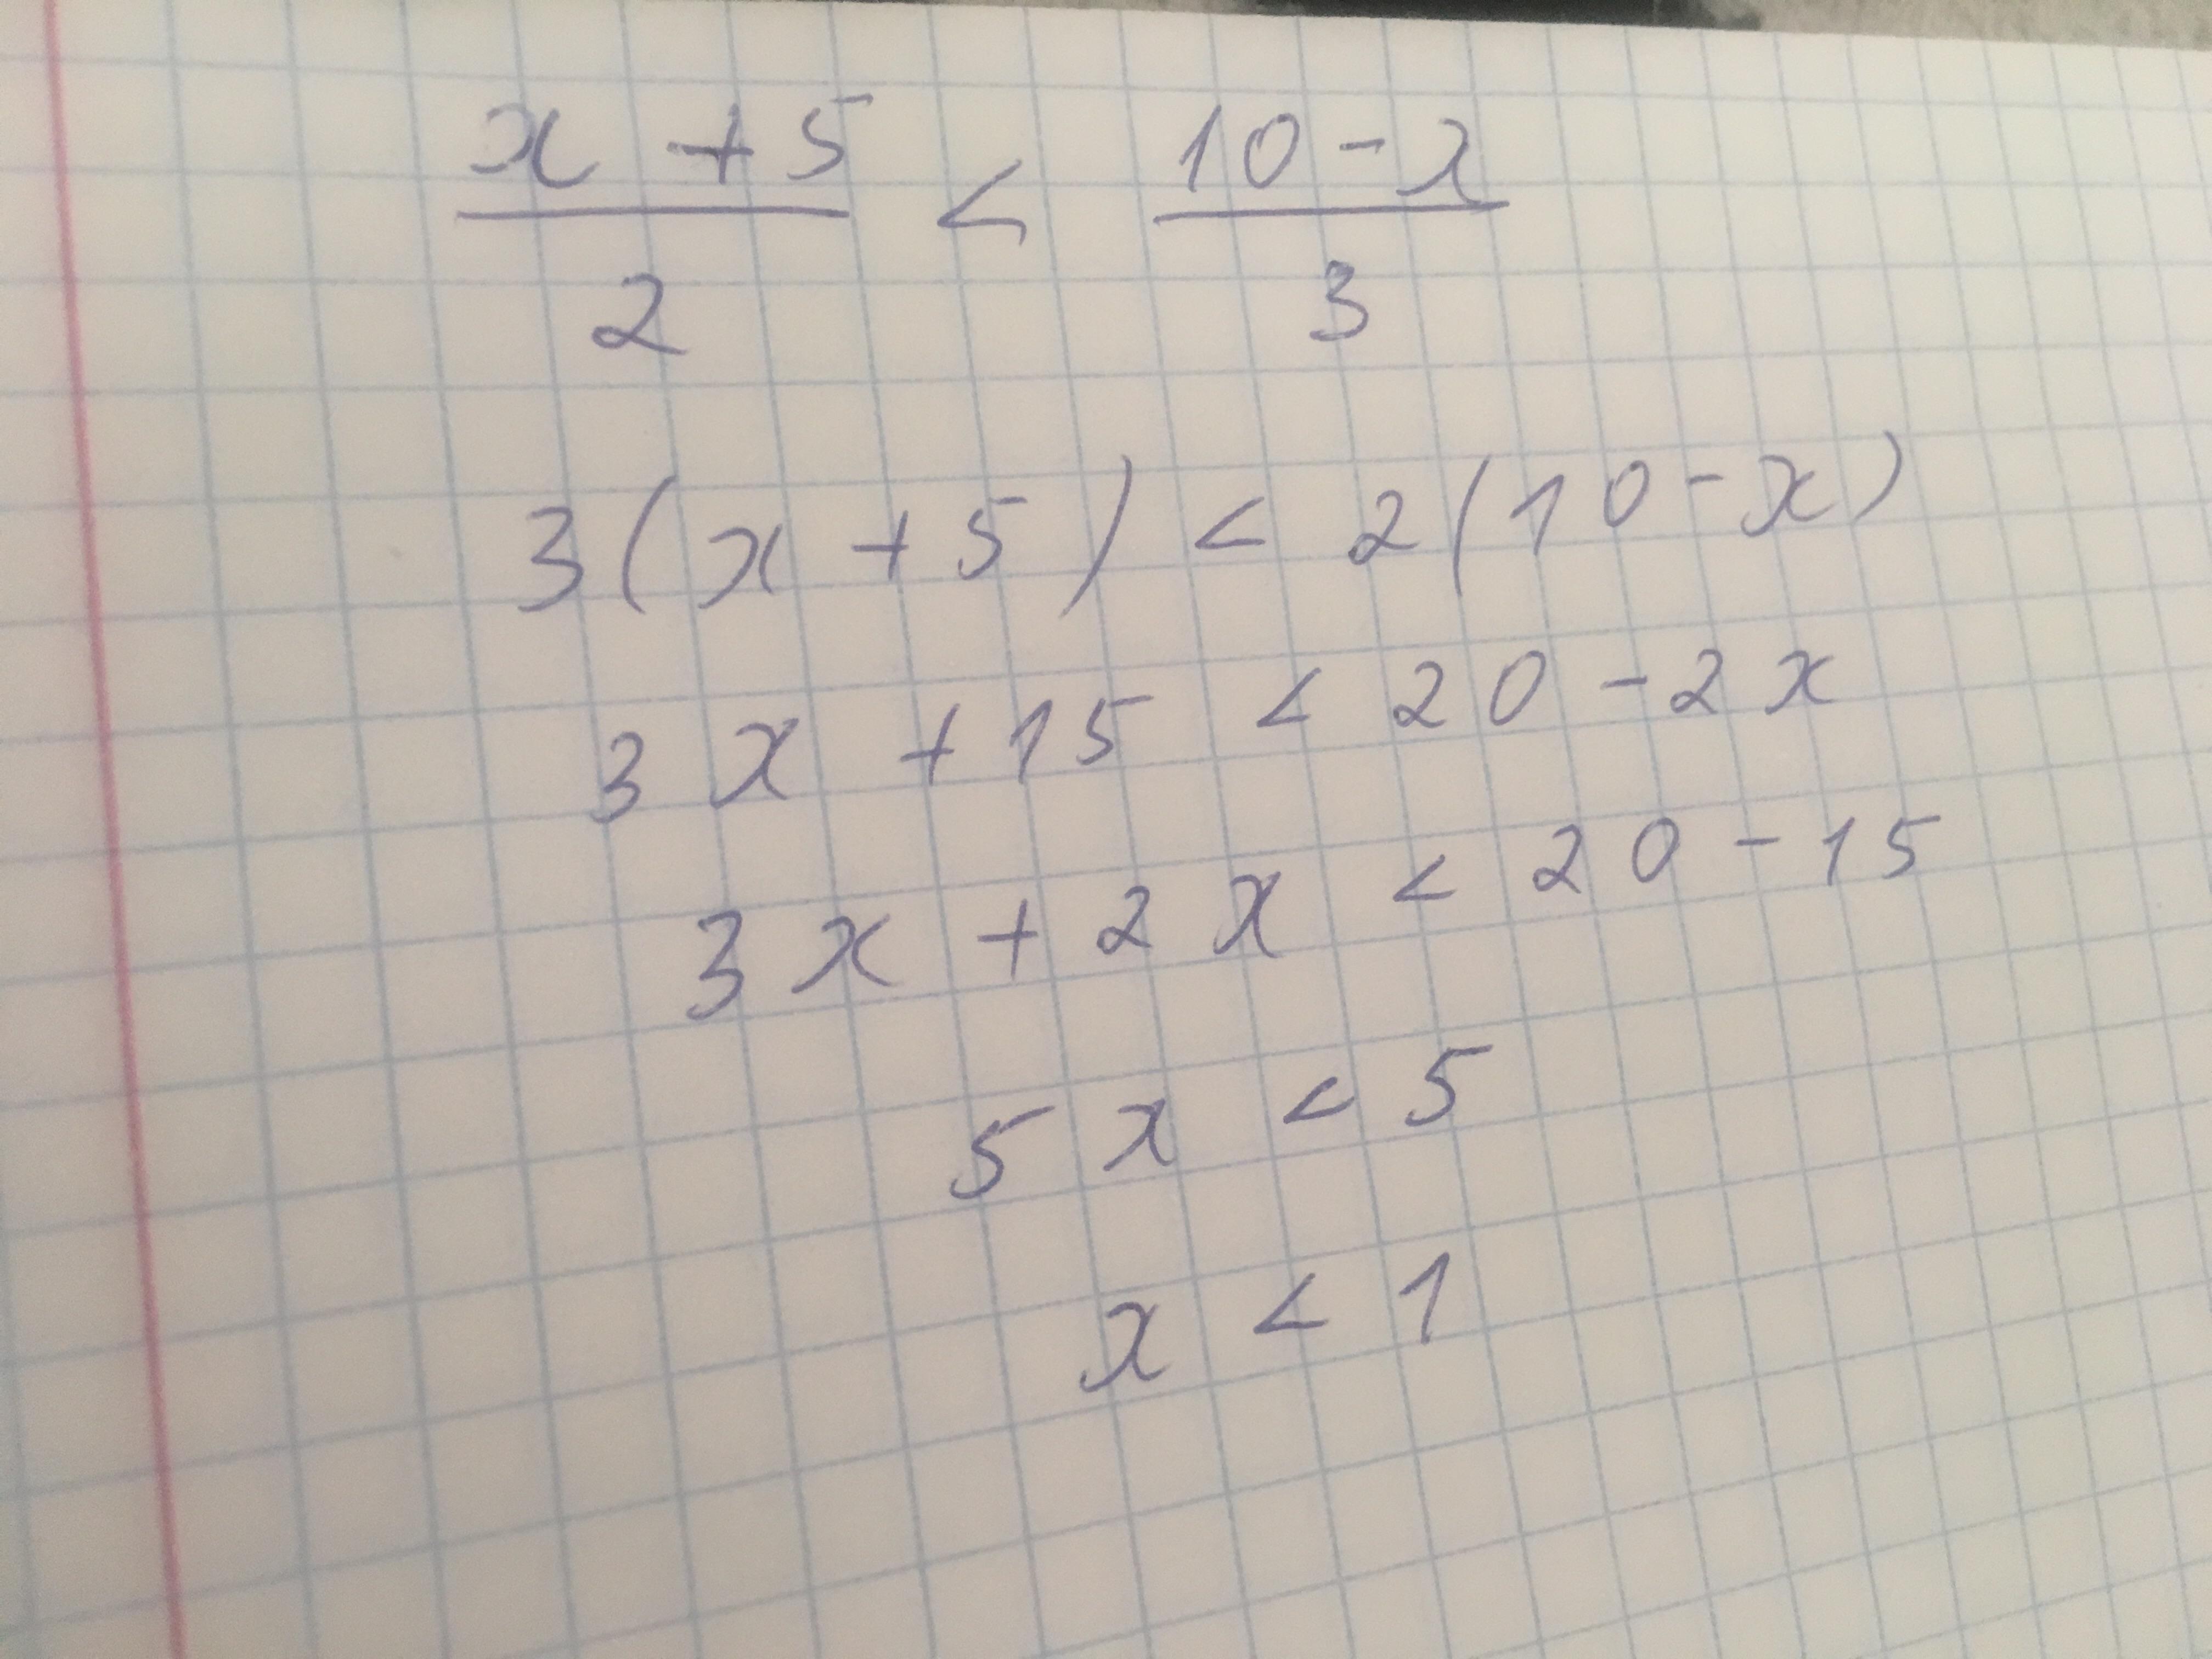 x + 5 / 2 < 10 - x / 3
3(x + 5) < 2(10 - x)
3x + 15 < 20 - 2x
3x + 2x < 20 - 15
5x < 5
x < 1